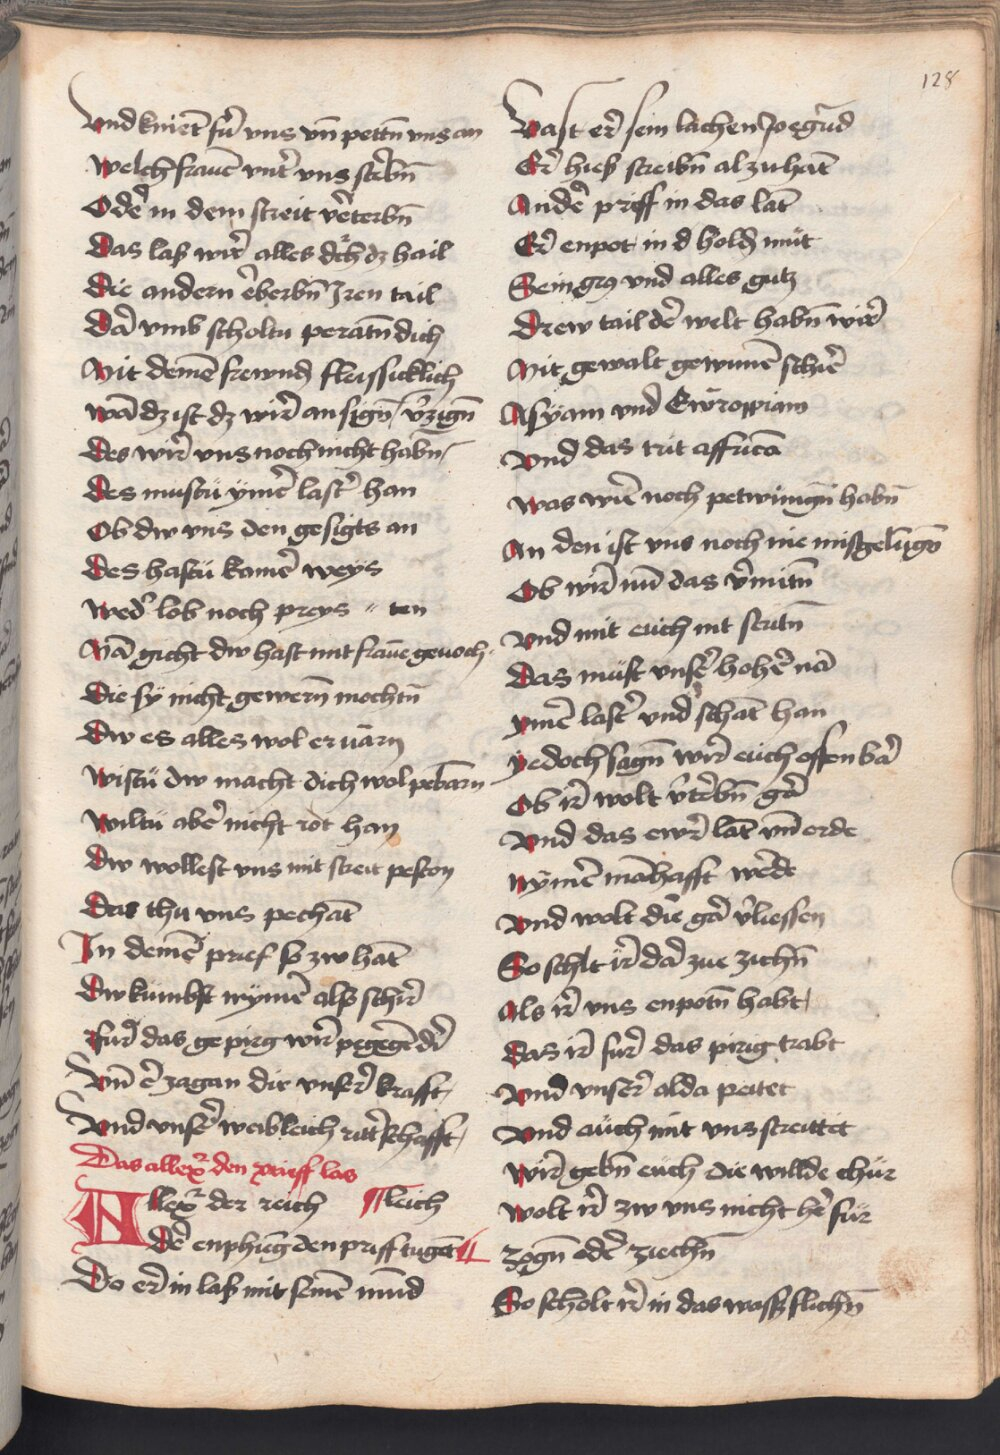 128
Vnd kniet̄ fu᷑ vns vn̄ pettn̄ vns an
Welch frauē vnt᷑ vns ste᷑bn̄
Ode᷑ in dem streit v᷑terbn̄
Das laß wir᷑ alles dch dz hail
Die andern e᷑berbn̄ Jren tail
Dar᷑ vmb scholtu peratn̄ dich
Mit deinē frewnd̄ fleissicklich
wā dz ist dz wir᷑ an sign̄ v᷑zign̄
Des wir᷑ vns noch nicht habn̄
Des mustu ÿme᷑ last᷑ han
Ob dw vns den gesigts an
Des hastü kainē weys
Wed᷑ lob noch preys ten
Mā gicht dw hast mit fraūe geuoch
Die sÿ nicht gewern̄ mochtn̄
Dw es alles wol eruarn
Wistü dw macht dich wol pebarn
Wiltü abe᷑ nicht rot han
Dw wollest vns mit streit peston
Das thu vns pechāt
In deinē prief so zw hāt
Dw kumbst nÿmē alß schir᷑
fur᷑ das gepirg wir᷑ pegegēt dir᷑
Vn̄ e᷑zaigan dir vnser᷑ krafft
Vnd vnser᷑ weibleich ritt᷑schafft
Das allex᷑ den prieff las
Allex᷑ der reich leich
De᷑ enphieng den priff tugēt
Do er᷑ in laß mit seinē mūnd
Vast er᷑ sein lachen Jo egrūd
Er᷑ hieß screibn̄ al zu hāt
Ande᷑ priff in das lāt
Er᷑ enpot in d hold̄ müt
Sein grus vnd alles gutz
Drew tail de᷑ welt habn̄ wir᷑
Mit gewalt gewunnē schir᷑
Asÿam vnd Ewropiam
Vnd das trit affrica
Was wir᷑ noch petwungn̄ habn̄
An den ist vns noch nie misgelūgō
Ob wir᷑ nū das v᷑mitn̄
Vnd mit euch nit stritn̄
Das müst vnser᷑ hohe᷑ nā
ymē last᷑ vnd schāt han
yedoch sagn̄ wir᷑ euch offenbar᷑
Ob ir᷑ wolt v᷑terbn̄ gar᷑
Vnd das ewr᷑ lāt vn̄ erde
Nÿmē māhafft werde
Vnd wolt die gar᷑ v᷑liessen
So schlt ir᷑ dar᷑ zue zichn̄
Als ir᷑ vns enpotn̄ habt
Das ir᷑ fur᷑ das pirig trabt
Vnd vnser᷑ alda peitet
Vnd auch mit vns streittet
Wir᷑ gebn̄ euch die willde chür
Wolt ir᷑ zw vns nicht he᷑ für
Zogn̄ ode᷑ ziechn̄
So scholt ir᷑ in das wass᷑ flichn̄